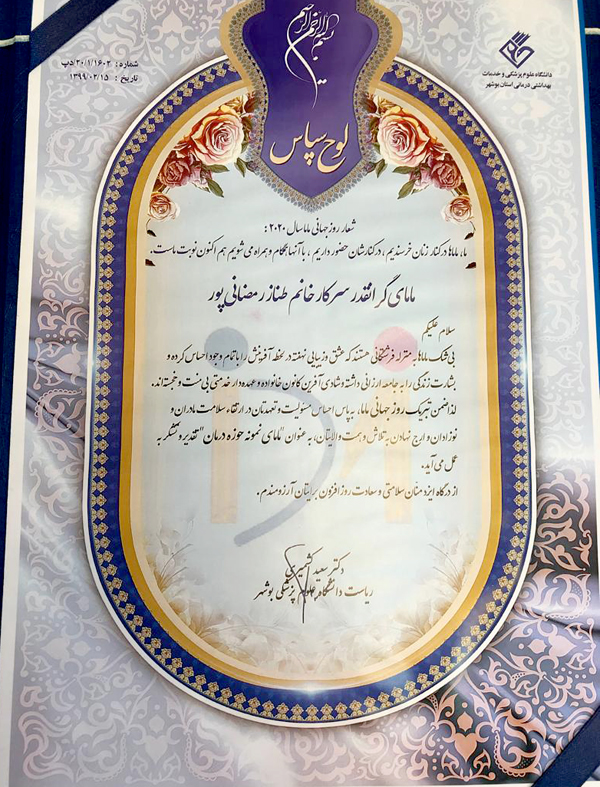 بسم الله الرحمن الرحیم
شماره : ۲۰/۱/۱۶۰۲/دپ
تاریخ : ۱۳۹۹/۰۲/۱۵
دانشگاه علوم پزشکی و خدمات
بهداشتی درمانی استان بوشهر
لوح سپاس
شعار روز جهانی ماما سال ۲۰۲۰ :
ما، ماماها در کنار زنان خرسندیم ، در کنارشان حضور داریم ، با آنها همگام و همراه می شویم هم اکنون نوبت ماست.
مامای گرانقدر سرکار خانم طناز رمضانی پور
سلام علیکم
بی شک ماماها به منزله فرشتگانی هستند که عشق و زیبایی نهفته در لحظه آفرینش را با تمام وجود احساس کرده و
بشارت زندگی را به جامعه ارزانی داشته و شادی آفرین کانون خانواده و عهده دار خدمتی بی منت و خجسته اند.
لذا ضمن تبریک روز جهانی ماما، به پاس احساس مسئولیت و تعهدتان در ارتقاء سلامت مادران و
نوزادان و ارج نهادن به تلاش و همت والایتان، به عنوان "مامای نمونه حوزه درمان" تقدیر و تشکر به
عمل می آید.
از درگاه ایزد منان سلامتی و سعادت روز افزون برایتان آرزومندم.
دکتر سعید کشمیری
ریاست دانشگاه علوم پزشکی بوشهر